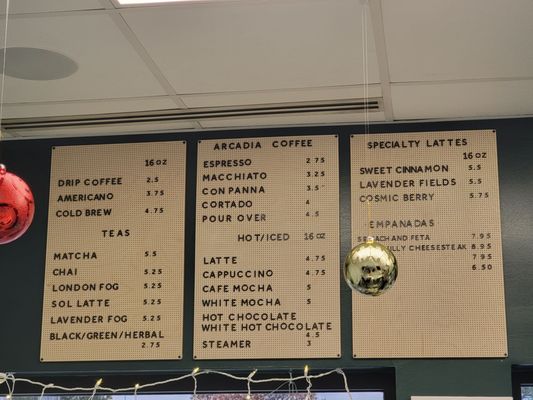 16 OZ
DRIP COFFEE 2.5
AMERICANO 3.75
COLD BREW 4.75
TEAS
MATCHA 5.5
CHAI 5.25
LONDON FOG 5.25
SOL LATTE 5.25
LAVENDER FOG 5.25
BLACK/GREEN/HERBAL
2.75
ARCADIA COFFEE
ESPRESSO 2.75
MACCHIATO 3.25
CON PANNA 3.5
CORTADO 4
POUR OVER 4.5
HOT/ICED 16 OZ
LATTE 4.75
CAPPUCCINO 4.75
CAFE MOCHA 5
WHITE MOCHA 5
HOT CHOCOLATE
WHITE HOT CHOCOLATE
4.5
STEAMER 3
SPECIALTY LATTES
16 OZ
SWEET CINNAMON 5.5
LAVENDER FIELDS 5.5
COSMIC BERRY 5.75
EMPANADAS
AND FETA 7.95
CHEESESTEAK 8.95
7.95
6.50